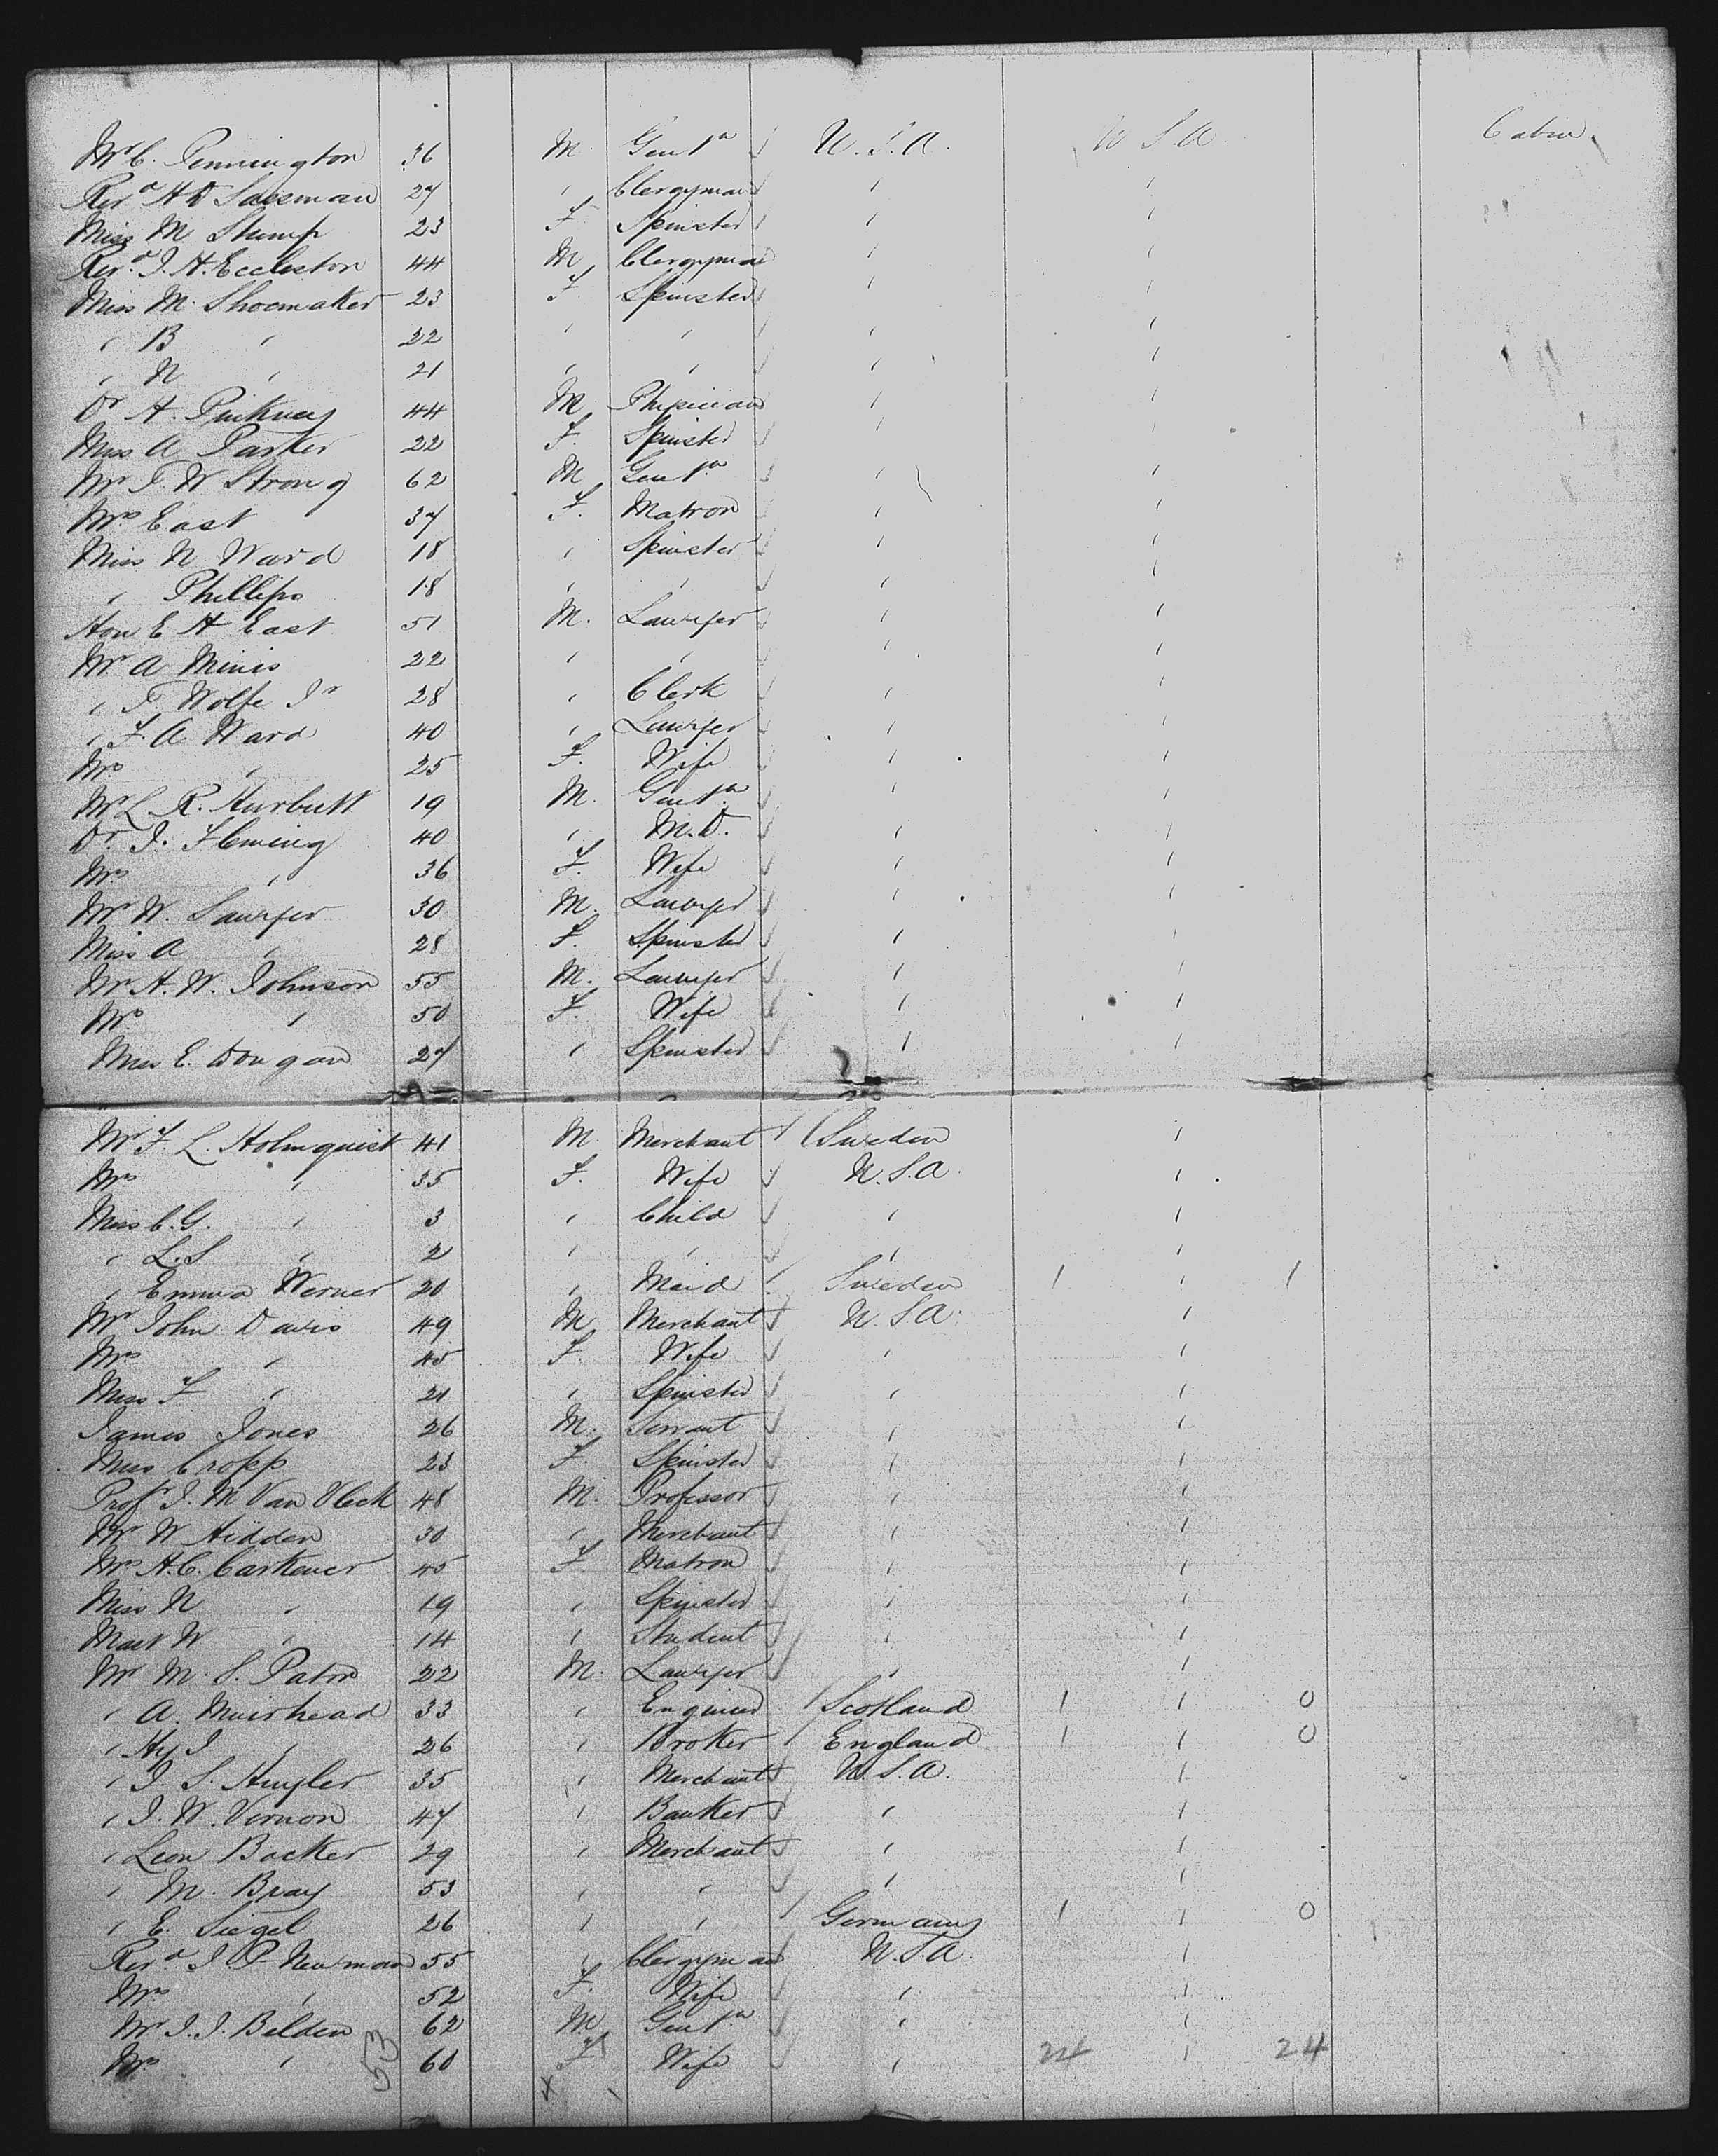 Mr C. Pennington 36 M. Gentn U.S.A. U S A Cabin
Revd H D 27 " Clergyman " "
Miss M Stump 23 F Spinster " "
Revd J. H. Eccleston 44 M Clergyman " "
Miss M. Shoemaker 23 F Spinster " "
" B " 22 " " " "
" N " 21 " " " "
Dr H. Pinkney 44 M Physician " "
Miss A Parker 22 F. Spinster " "
Mr T. W Strong 62 M Gentn " "
Mrs East 37 F. Matron " "
Miss N Ward 18 " Spinster " "
" Phillips 18 " " " "
Hon E H East 51 M. Lawyer " "
Mr A Minis 22 " " " "
" T. Wolfe Jr 28 " Clerk " "
" F. A Ward 40 " Lawyer " "
Mrs " 25 F. Wife " "
Mr L. R. Hurbutt 19 M. Gentn " "
Dr. J. Fleming 40 " M.D. " "
Mrs " 36 F. Wife " "
Mr W. Sawyer 30 M. Lawyer " "
Miss A " 28 F. Spinster " "
Mr H. W. Johnson 55 M. Lawyer " "
Mrs " 50 F. Wife " "
Miss E. Dougan 27 " Spinster " "
Mr F. L. Holmquist 41 M. Merchant Sweden "
Mrs " 35 F. Wife U.S.A. "
Miss C. G. " 3 " Child " "
" L. S " 2 " " " "
" Emma Werner 20 " Maid Sweden 1 " 1
Mr John Davis 49 M Merchant U.S.A. "
Mrs " 45 F. Wife " "
Miss F " 21 " Spinster " "
James Jones 26 M. Servant " "
Miss Cropp 23 F. Spinster " "
Profr J. M Van Vleck 48 M. Professor " "
Mr W Hidden 30 " Merchant " "
Mrs H. C. Carkener 45 F. Matron " "
Miss N " 19 " Spinster " "
Mast W " 14 " Student " "
Mr M. S. Paton 22 M. Lawyer " "
" A. Muirhead 33 " Engineer Scotland 1 " 0
" Hy J " 26 " Broker England 1 " 0
" J. S. Huyler 35 " Merchant U.S.A. "
" J. W. Vernon 47 " Banker " "
" Leon Backer 29 " Merchant " "
" M. Bray 53 " " " "
" E. Siegel 26 " " Germany 1 " 0
Revd. J. P. Newman 55 " Clergyman U.S.A. "
Mrs " 52 F. Wife " "
Mr J. J. Belden 62 M. Gentn " "
Mrs " 60 F. Wife " 24 " 24
53